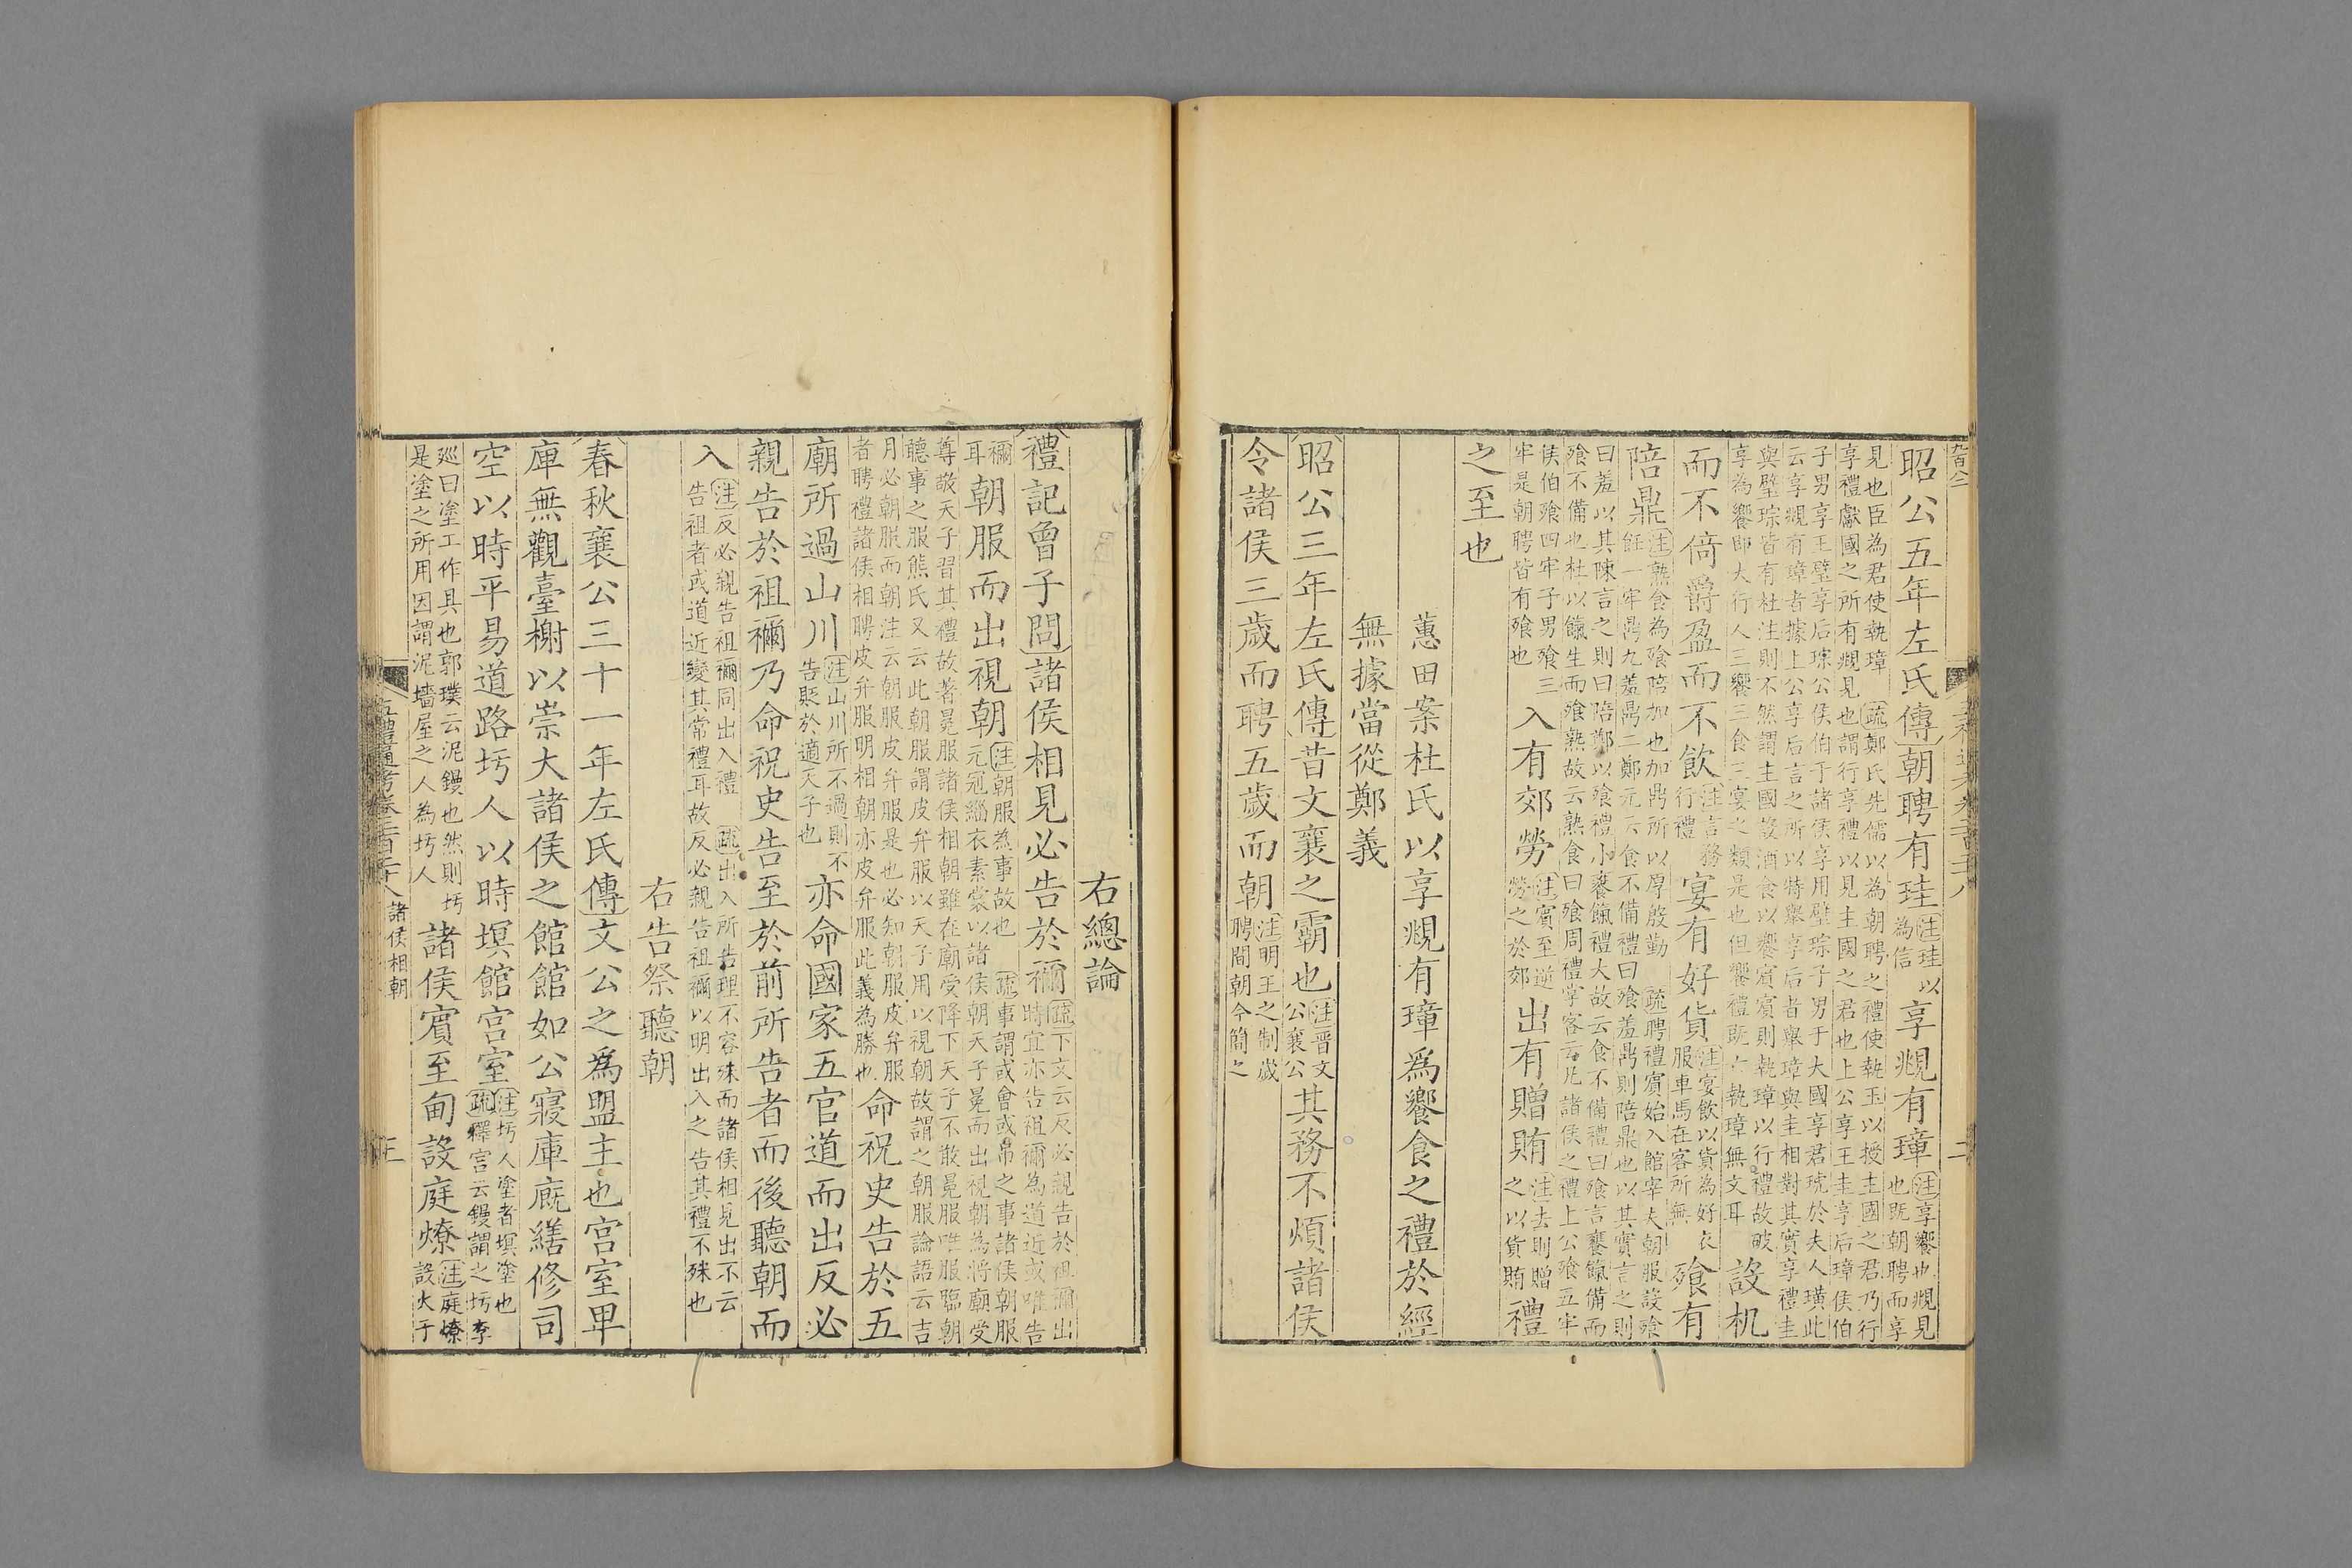 昭公五年左氏傳朝聘有珪注珪以為信享覜有璋注享饗也覜見也既朝聘而享
見也臣為君使執璋疏鄭氏先儒以為朝聘之禮使執玉以授主國之君乃行
享禮獻國之所有覜見也謂行享禮以見主國之君也上公享王圭享后璋侯伯
子男享王璧享后琮公侯伯于諸侯享用璧琮子男于大國享君琥於夫人璜此
云享覜有璋者據上公享后言之所以特舉享后者舉璋與圭相對其實享禮圭
與璧琮皆有杜注則不然謂主國設酒食以饗賓賓則執璋以行禮故破
享為饗即大行人三饗三食三宴之類是也但饗禮既亡執璋無文耳設机
而不倚爵盈而不飲注言務行禮宴有好貨注宴飲以貨為好衣服車馬在客所無飧有
陪鼎注熟食為飧陪加也加鼎所以厚殷勤疏聘禮賓始入館宰夫朝服設飧
飪一牢鼎九羞鼎二鄭元云食不備禮曰飧羞鼎則陪鼎也以其實言之則
曰羞以其陳言之則曰陪鄭以飧禮小饔餼禮大故云食不備禮曰飧言饔餼備而
飧不備也杜以餼生而飧熟故云熟食曰飧周禮掌客云凡諸侯之禮上公飧五牢
侯伯飧四牢子男飧三牢是朝聘皆有飧也入有郊勞注賓至逆勞之於郊出有贈賄注去則贈之以貨賄禮
之至也
蕙田案杜氏以享覜有璋為饗食之禮於經
無據當從鄭義
昭公三年左氏傳昔文襄之霸也注晉文公襄公其務不煩諸侯
令諸侯三歲而聘五歲而朝注明王之制歲聘間朝今簡之
右總論
禮記曾子問諸侯相見必告於禰疏下文云反必親告於祖禰出時宜亦告祖禰為道近或唯告
禰耳朝服而出視朝注朝服為事故也疏事謂或會或弔之事諸侯朝服
元冠緇衣素裳以諸侯朝天子冕而出視朝為將廟受
尊敬天子習其禮故著冕服諸侯相朝雖在廟受降下天子不敢冕服唯服臨朝
聽事之服熊氏又云此朝服謂皮弁服以天子用以視朝故謂之朝服論語云吉
月必朝服而朝注云朝服皮弁服是也必知朝服皮弁服
者聘禮諸侯相聘皮弁服明相朝亦皮弁服此義為勝也命祝史告於五
廟所過山川注山川所不過則不告貶於適天子也亦命國家五官道而出反必
親告於祖禰乃命祝史告至於前所告者而後聽朝而
入注反必親告祖禰同出入禮疏出入所告理不容殊而諸侯相見出不云
告祖者或道近變其常禮耳故反必親告祖禰以明出入之告其禮不殊也
右告祭聽朝
春秋襄公三十一年左氏傳文公之為盟主也宮室卑
庳無觀臺榭以崇大諸侯之館館如公寢庫廄繕修司
空以時平易道路圬人以時塓館宮室注圬人塗者塓塗也疏釋宮云鏝謂之圬李
巡曰塗工作具也郭璞云泥鏝也然則圬
是塗之所用因謂泥墻屋之人為圬人諸侯賓至甸設庭燎注庭燎設火于
五禮通考卷二百二十八 諸侯相朝 三